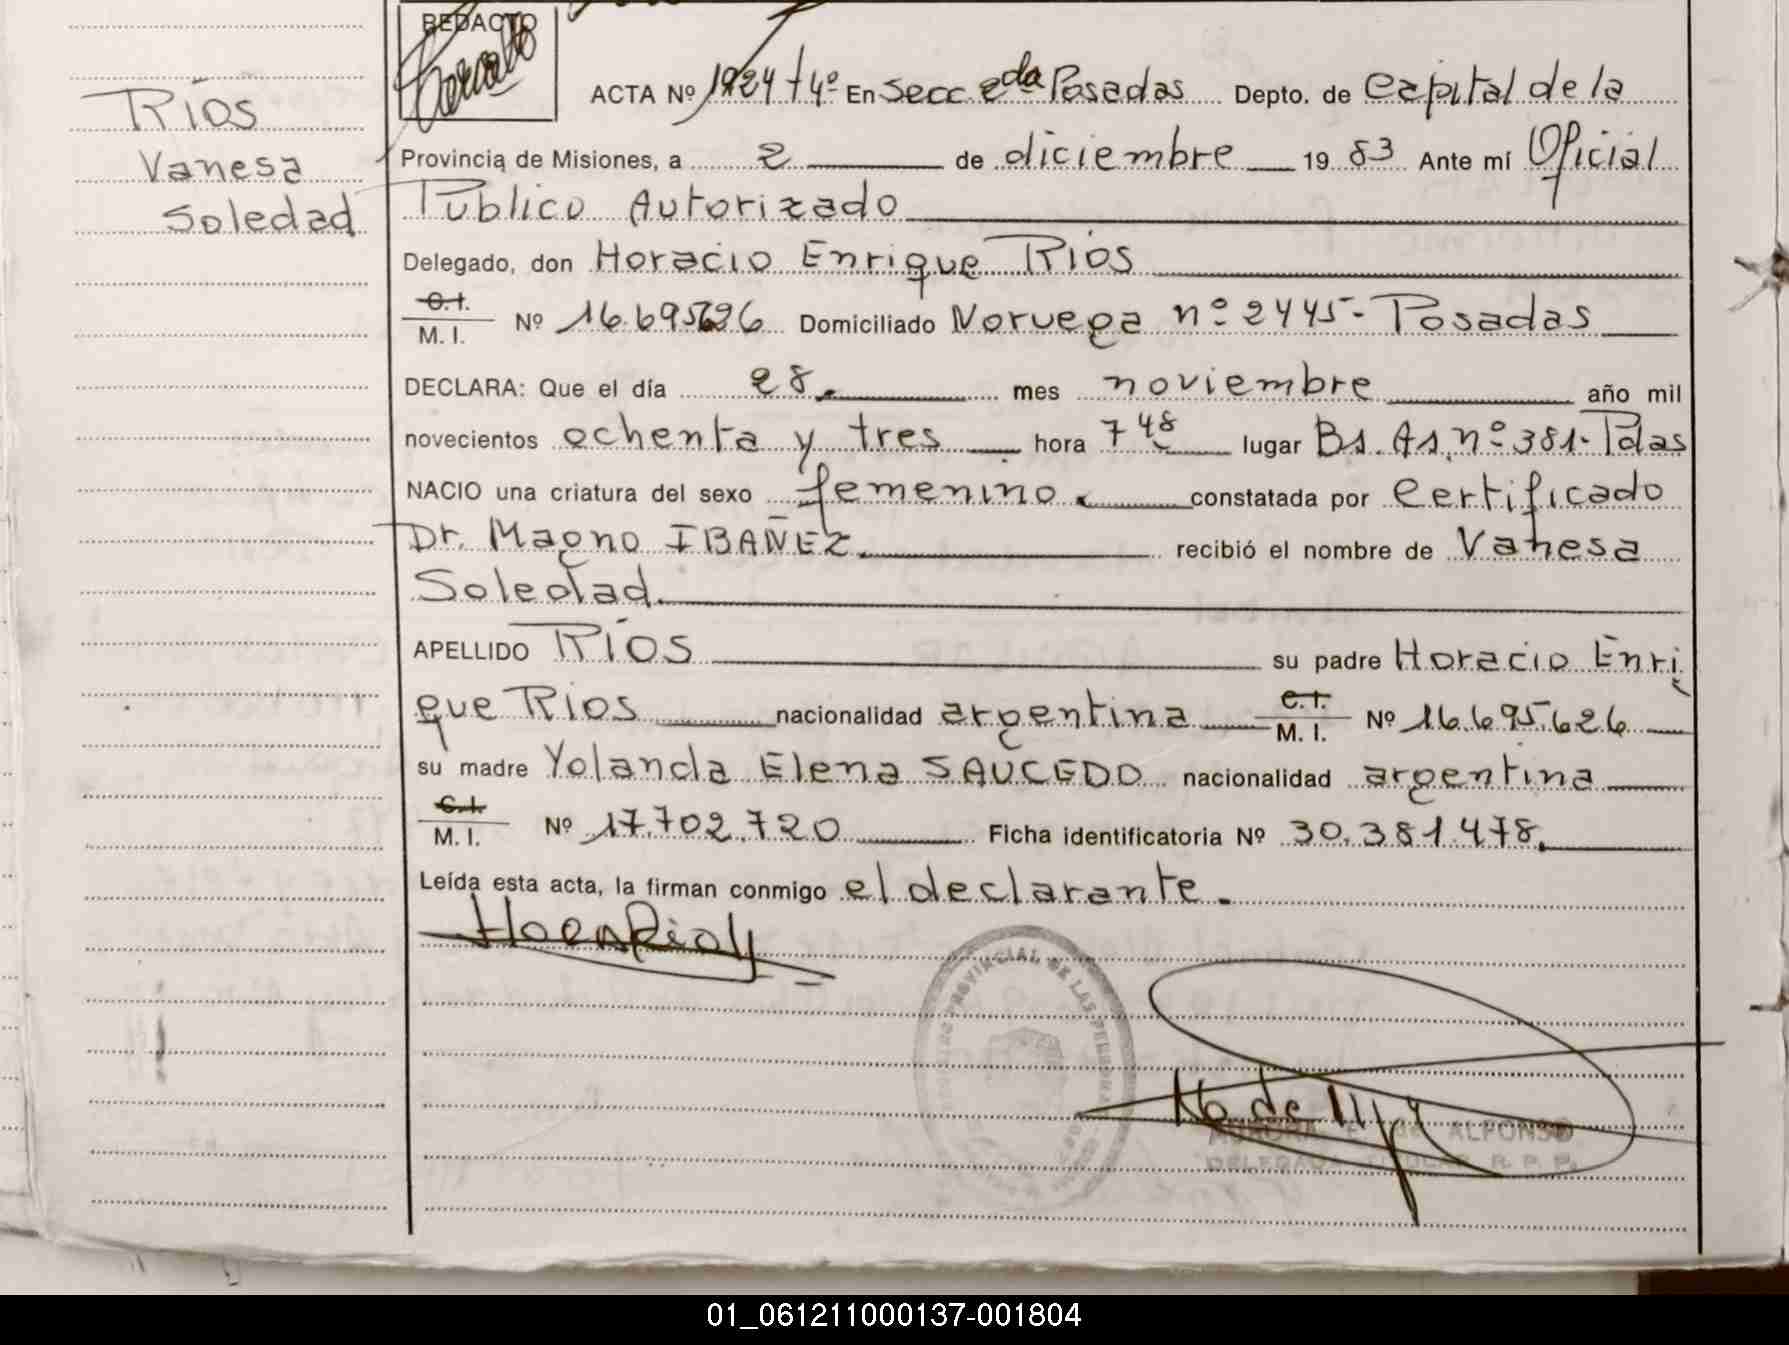 REDACTO
Ríos
Vanesa
Soledad
ACTA Nº 1924 t 4º En Secc. 2da Posadas Depto. de Capital de la
Provincia de Misiones, a 2 de diciembre 19 83 Ante mí Oficial
Público Autorizado
Delegado, don Horacio Enrique Ríos
C.I.
M. I. Nº Domiciliado Noruega nº 2445 - Posadas
DECLARA: Que el día 28. mes noviembre año mil
novecientos ochenta y tres hora 7 48 lugar Bs. As. nº 381 - Pdas
NACIO una criatura del sexo femenino. constatada por Certificado
Dr. Magno IBAÑEZ. recibió el nombre de Vanesa
Soledad.
APELLIDO Ríos su padre Horacio Enri
que Ríos nacionalidad argentina C.I.
M. I. Nº 16.695.626
su madre Yolanda Elena SAUCEDO nacionalidad argentina
C.I.
M. I. Nº 17.702.720 Ficha identificatoria Nº 30.381.478.
Leída esta acta, la firman conmigo el declarante.
PROVINCIAL DE LAS PERSONAS
ALFONSO
DELEGADA TITULAR R. P. P.
01_061211000137-001804